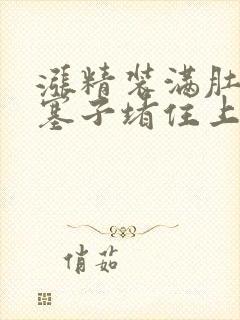 漲精装满肚
塞子堵住上
俏茹